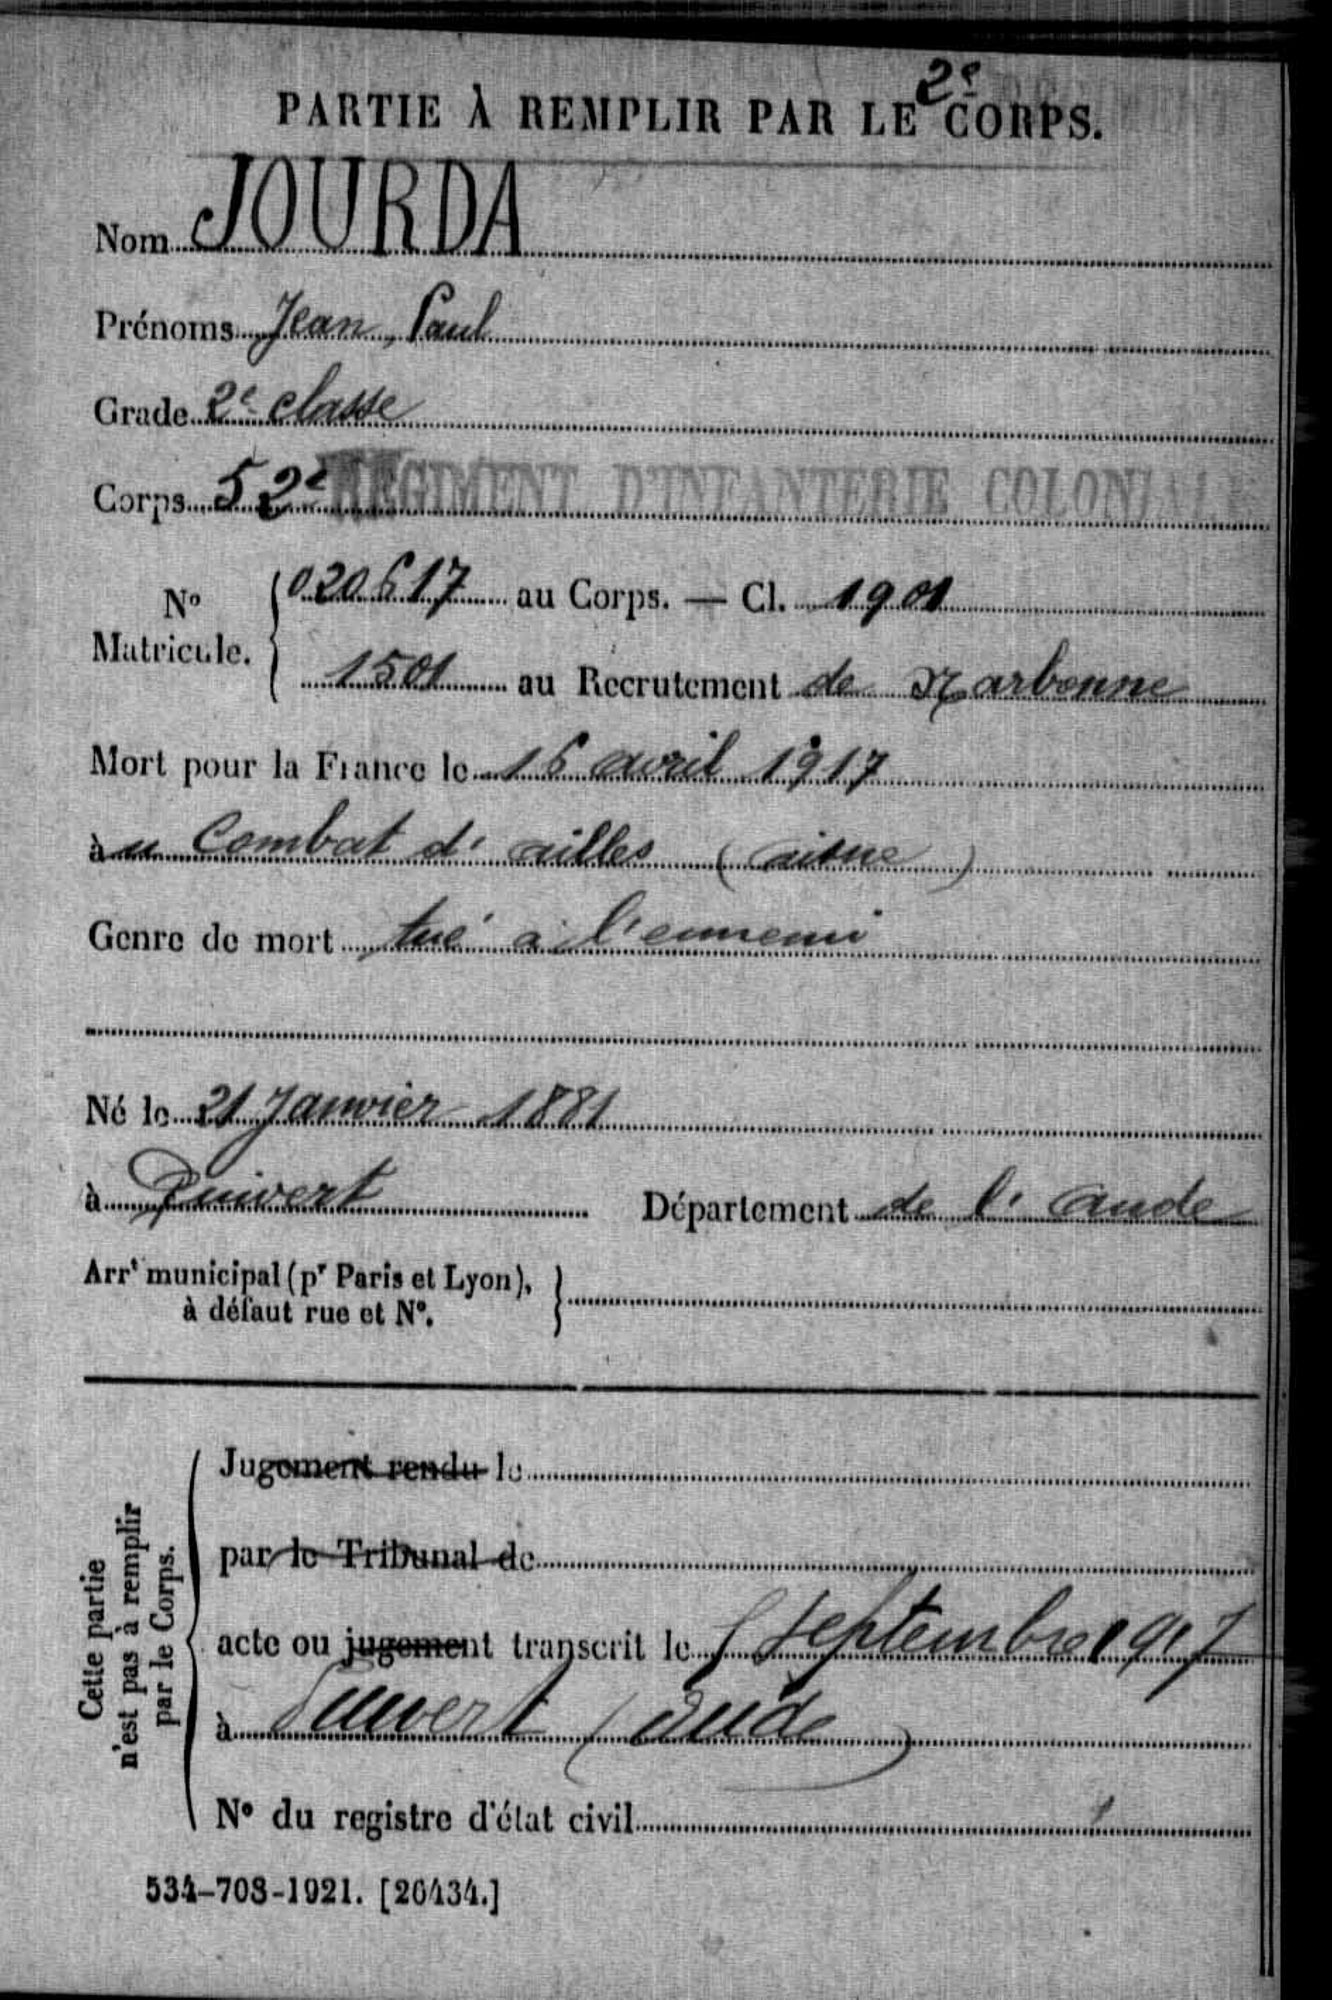 2e
PARTIE À REMPLIR PAR LE CORPS.
Nom JOURDA
Prénoms Jean, Paul
Grade 2e classe
Corps 52e RÉGIMENT D'INFANTERIE COLONIALE
No Matricule. 020617 au Corps. — Cl. 1901
1501 au Recrutement de Narbonne
Mort pour la France le 16 avril 1917
au Combat d'ailles (aisne)
Genre de mort tué à l'ennemi
Né le 21 Janvier 1881
à Puivert Département de l'aude
Arrt municipal (pr Paris et Lyon),
à défaut rue et No.
Cette partie
n'est pas à remplir
par le Corps.
Jugement rendu le
par le Tribunal de
acte ou jugement transcrit le septembre 1917
à Puivert (aude)
No du registre d'état civil
534-708-1921. [26434.]